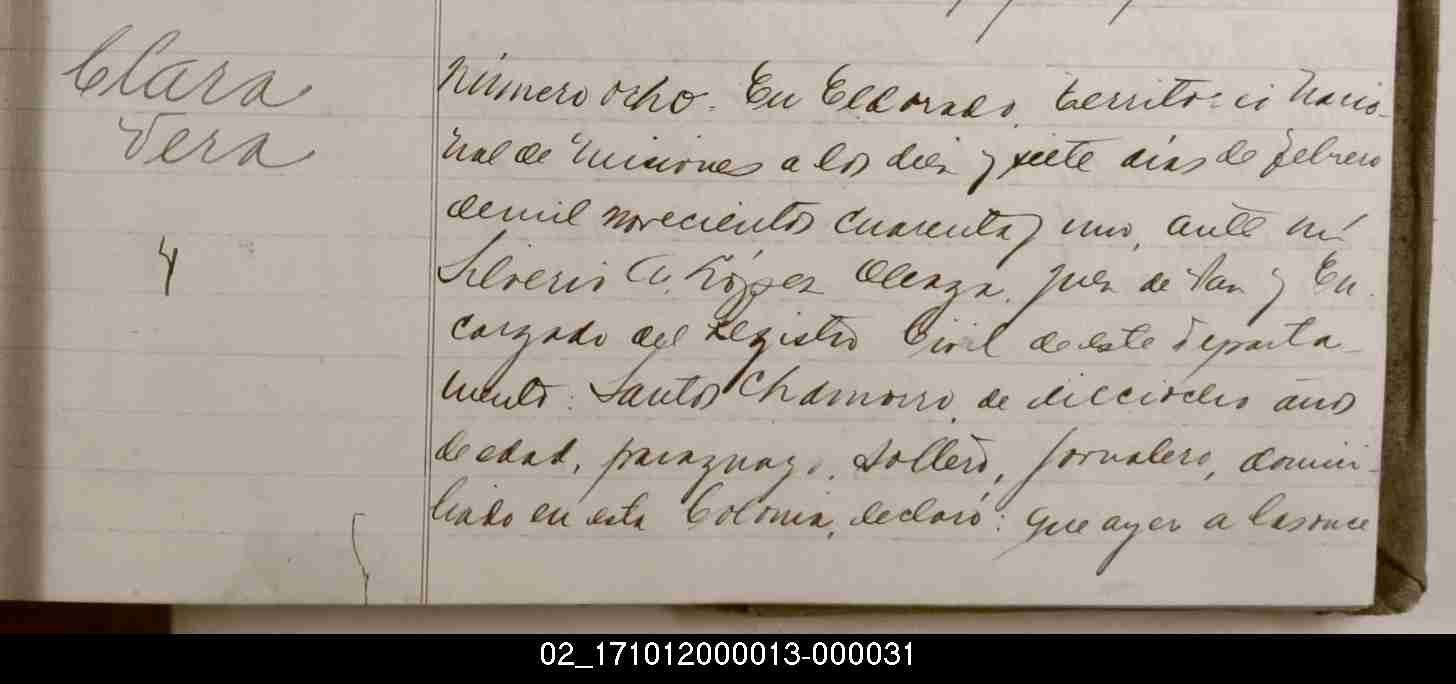 Clara
Vera
4
Número ocho. En Eldorado, territorio Nacio-
nal de Misiones a los diez y siete días de Febrero
de mil novecientos cuarenta y uno, ante mí
Silverio A. López Aleaga, Juez de Paz y En-
cargado del Registro Civil de este Departa-
mento: Santos Chamorro, de dieciocho años
de edad, paraguayo, soltero, jornalero, domici-
liado en esta Colonia, declaró: que ayer a las once
02_171012000013-000031